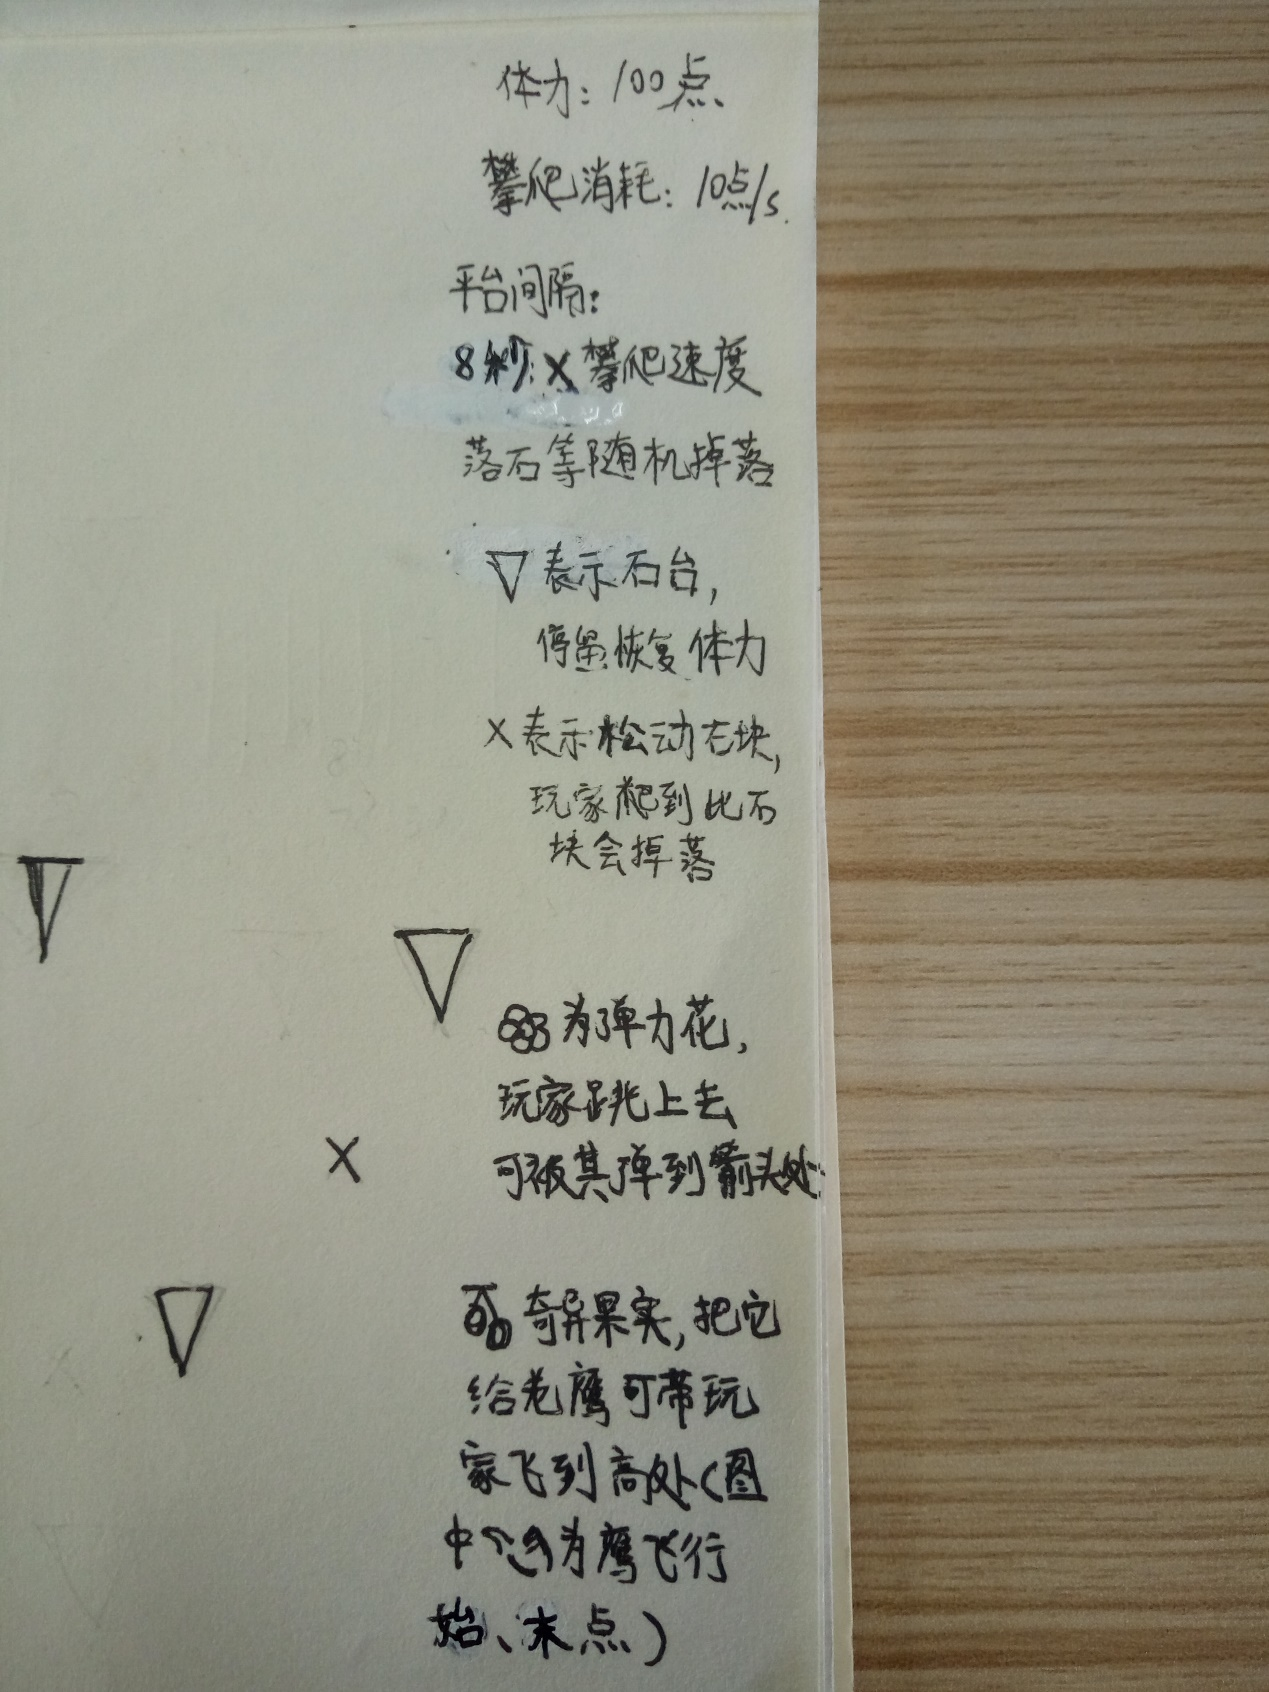 体力：100点
攀爬消耗：10点/s.
平台间隔：
8秒 x 攀爬速度
落石等随机掉落
▽表示石台，
停留恢复体力
×表示松动石块，
玩家爬到此石
块会掉落
为弹力花，
玩家跳上去
可被其弹到箭头处
奇异果实，把它
给老鹰可带玩
家飞到高处（图
中 为鹰飞行
始、末点）